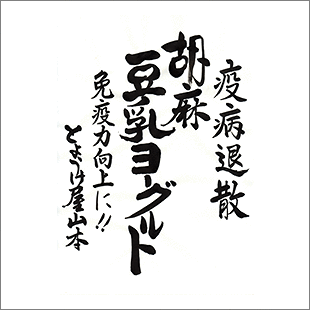 疫病退散
胡麻
豆乳ヨーグルト
免疫力向上に!!
とようけ屋山本